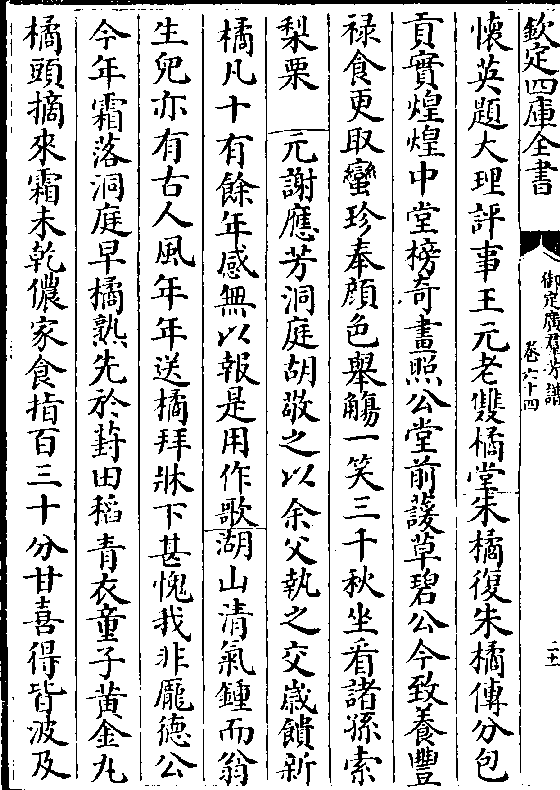 欽定四庫全書
御定廣羣芳譜
卷六十四
懐英題大理評事王元老雙橘堂朱橘復朱橘傳分包
貢實煌煌中堂榜奇畫照公堂前薐草碧公今致養豐
禄食更取蠻珍奉顔色舉觴一笑三千秋坐看諸孫索
梨栗　元謝應芳洞庭胡敬之以余父執之交嵗饋新
橘凡十有餘年感無以報是用作歌湖山清氣鍾而翁
生兒亦有古人風年年送橘拜牀下甚愧我非龎德公
今年霜落洞庭早橘熟先於葑田稻青衣童子黄金丸
橘頭摘來霜未乾儂家食指百三十分甘喜得皆波及